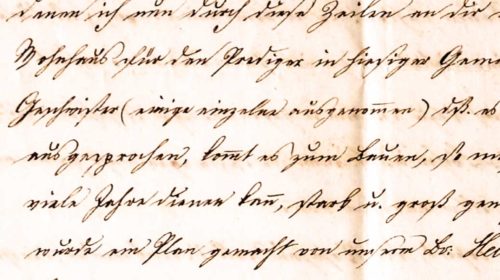 denen ich nun durch diese Zeilen an dir
Wohnhaus für den Prediger in hiesiger Gem
Geschwister (einige einzelne ausgenommen) dß. es
ausgesprochen, kommt es zum Bauen, so
viele Jahre dienen kann, stark u. groß gen
wurde ein Plan gemacht von unserm Br. He